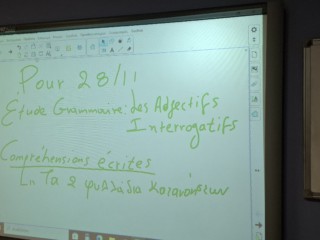 Pour 28/11
Etude Grammaire des Adjectifs
Interrogatifs
Compréhensions écrites
Τα 2 φυλλάδια κατανόησεων